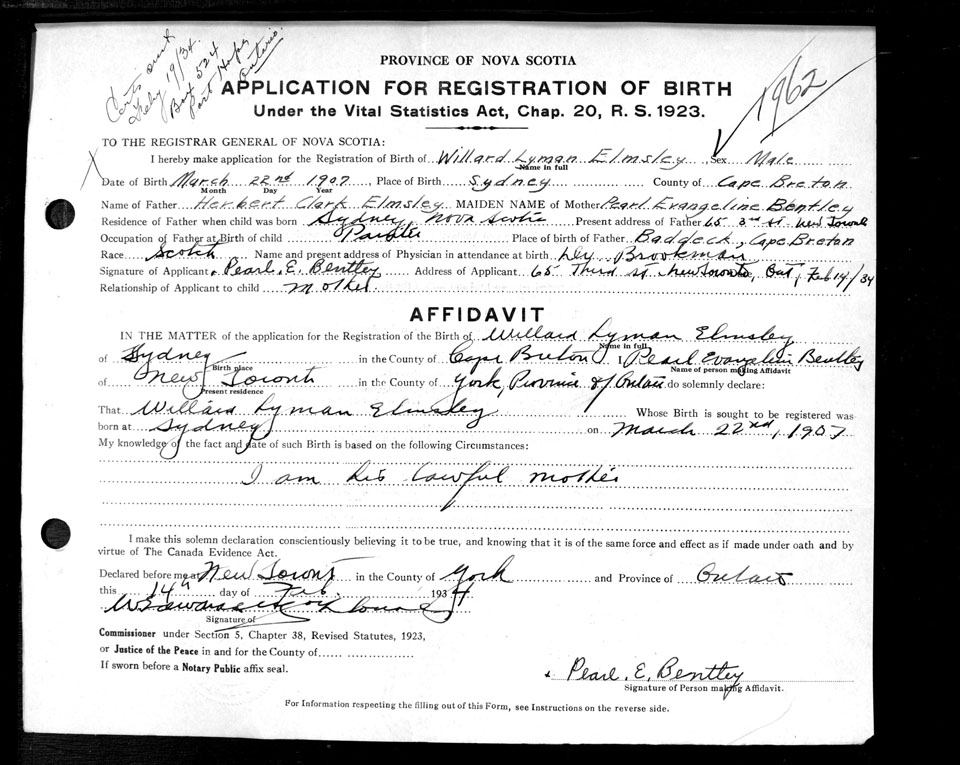 Certs out
Feby 19/34.
Box 524
Port Hope
Ontario.
1962
PROVINCE OF NOVA SCOTIA
APPLICATION FOR REGISTRATION OF BIRTH
Under the Vital Statistics Act, Chap. 20, R. S. 1923.
TO THE REGISTRAR GENERAL OF NOVA SCOTIA:
I hereby make application for the Registration of Birth of Willard Lyman Elmsley, Sex Male
Name in full
Date of Birth March 22nd 1907, Place of Birth Sydney County of Cape Breton
Month Day Year
Name of Father Herbert Clark Elmsley MAIDEN NAME of Mother Pearl Evangeline Bentley
Residence of Father when child was born Sydney, Nova Scotia Present address of Father 65 3rd St. New Toronto
Occupation of Father at Birth of child Painter Place of birth of Father Baddeck, Cape Breton
Race Scotch Name and present address of Physician in attendance at birth Dr Brookman
Signature of Applicant Pearl E. Bentley Address of Applicant 65 Third St. New Toronto, Ont, Feb 14/34
Relationship of Applicant to child mother
AFFIDAVIT
IN THE MATTER of the application for the Registration of the Birth of Willard Lyman Elmsley
Name in full
of Sydney in the County of Cape Breton I Pearl Evangelin Bentley
Birth place Name of person making Affidavit
of New Toronto in the County of York, Province of Ontario do solemnly declare:
Present residence
That Willard Lyman Elmsley Whose Birth is sought to be registered was
born at Sydney on March 22nd, 1907
My knowledge of the fact and date of such Birth is based on the following Circumstances:
I am his lawful mother
I make this solemn declaration conscientiously believing it to be true, and knowing that it is of the same force and effect as if made under oath and by
virtue of The Canada Evidence Act.
Declared before me at New Toronto in the County of York and Province of Ontario
this 14th day of Feb. 1934
Signature of
Commissioner under Section 5, Chapter 38, Revised Statutes, 1923,
or Justice of the Peace in and for the County of
If sworn before a Notary Public affix seal.
Pearl. E. Bentley
Signature of Person making Affidavit.
For Information respecting the filling out of this Form, see Instructions on the reverse side.